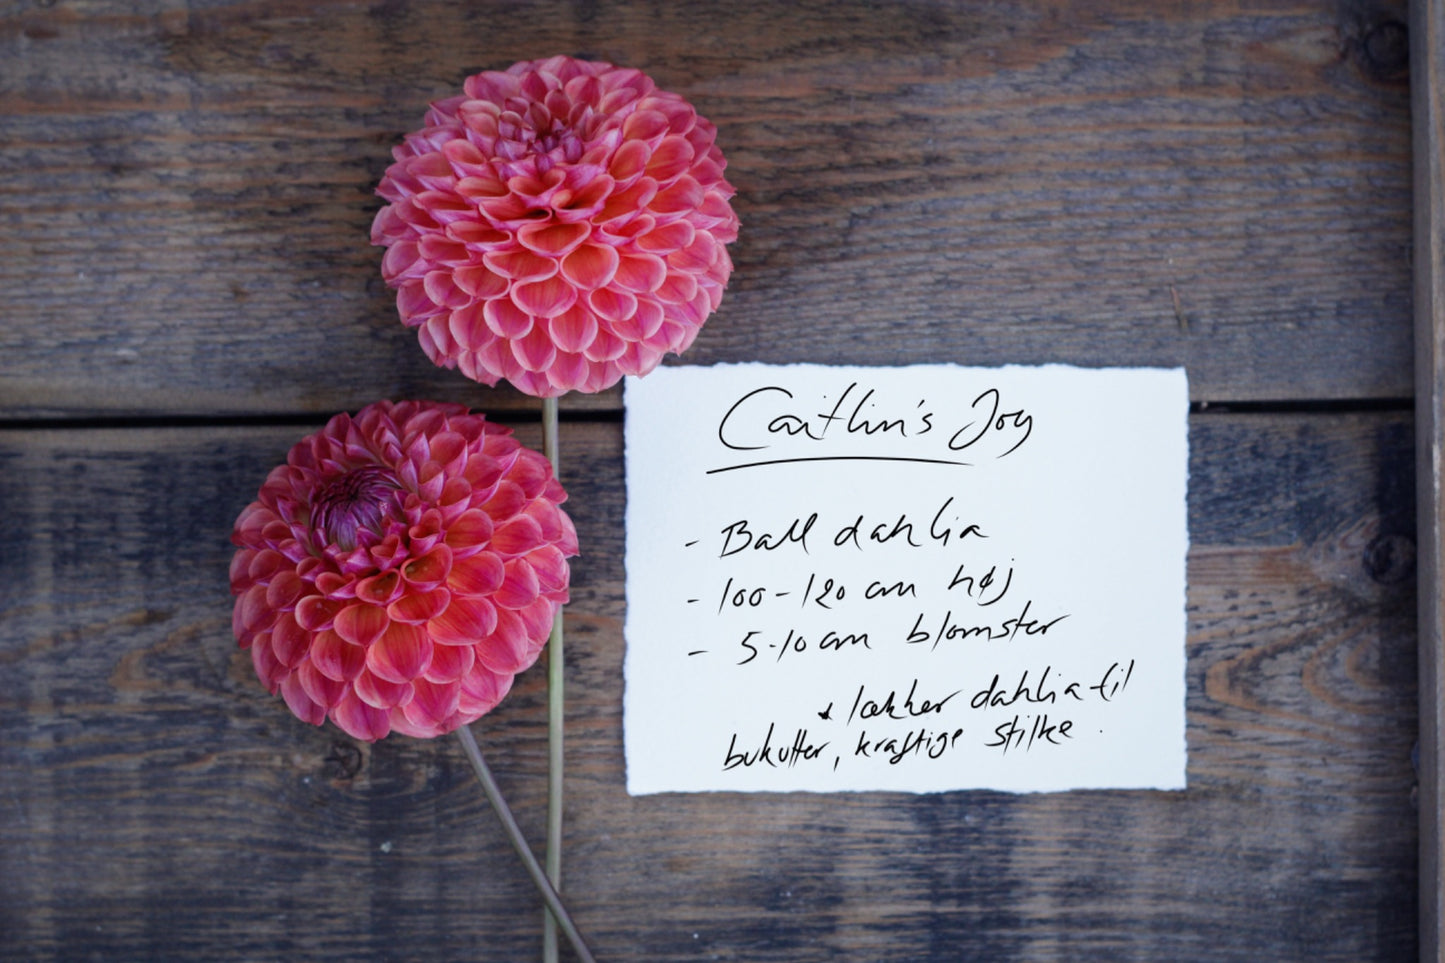 Caitlin's Joy
- Ball dahlia
- 100-120 cm høj
- 5-10 cm blomster
* lækker dahlia til
buketter, kraftige stilke.